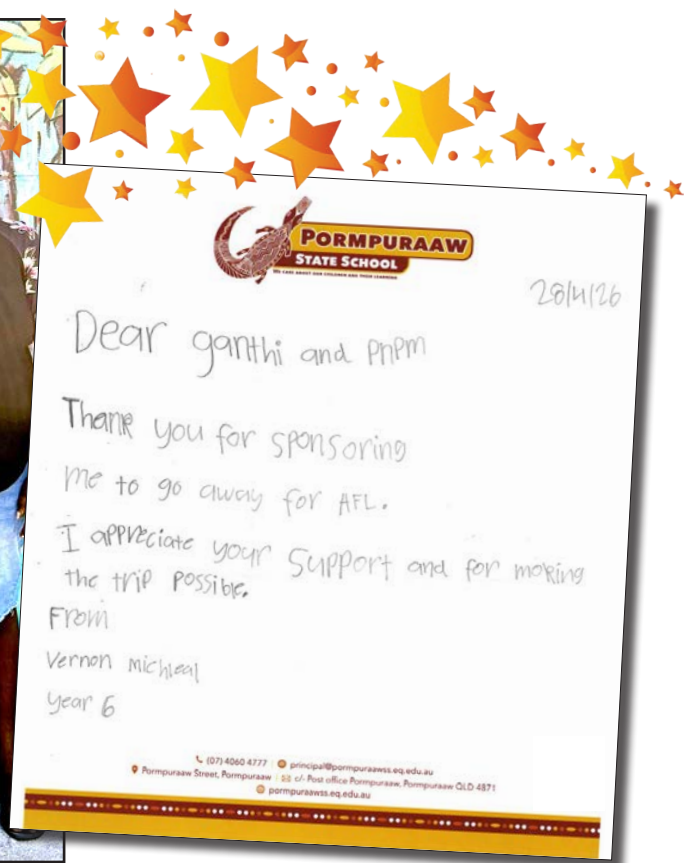 PORMPURAAW
STATE SCHOOL
WE CARE ABOUT OUR CHILDREN AND THEIR LEARNING
28/4/26
Dear ganthi and PnPm
Thank you for sponsoring
me to go away for AFL.
I appreciate your Support and for making
the trip possible.
From
Vernon michleal
year 6
(07) 4060 4777 principal@pormpuraawss.eq.edu.au
Pormpuraaw Street, Pormpuraaw c/- Post office Pormpuraaw, Pormpuraaw QLD 4871
pormpuraawss.eq.edu.au